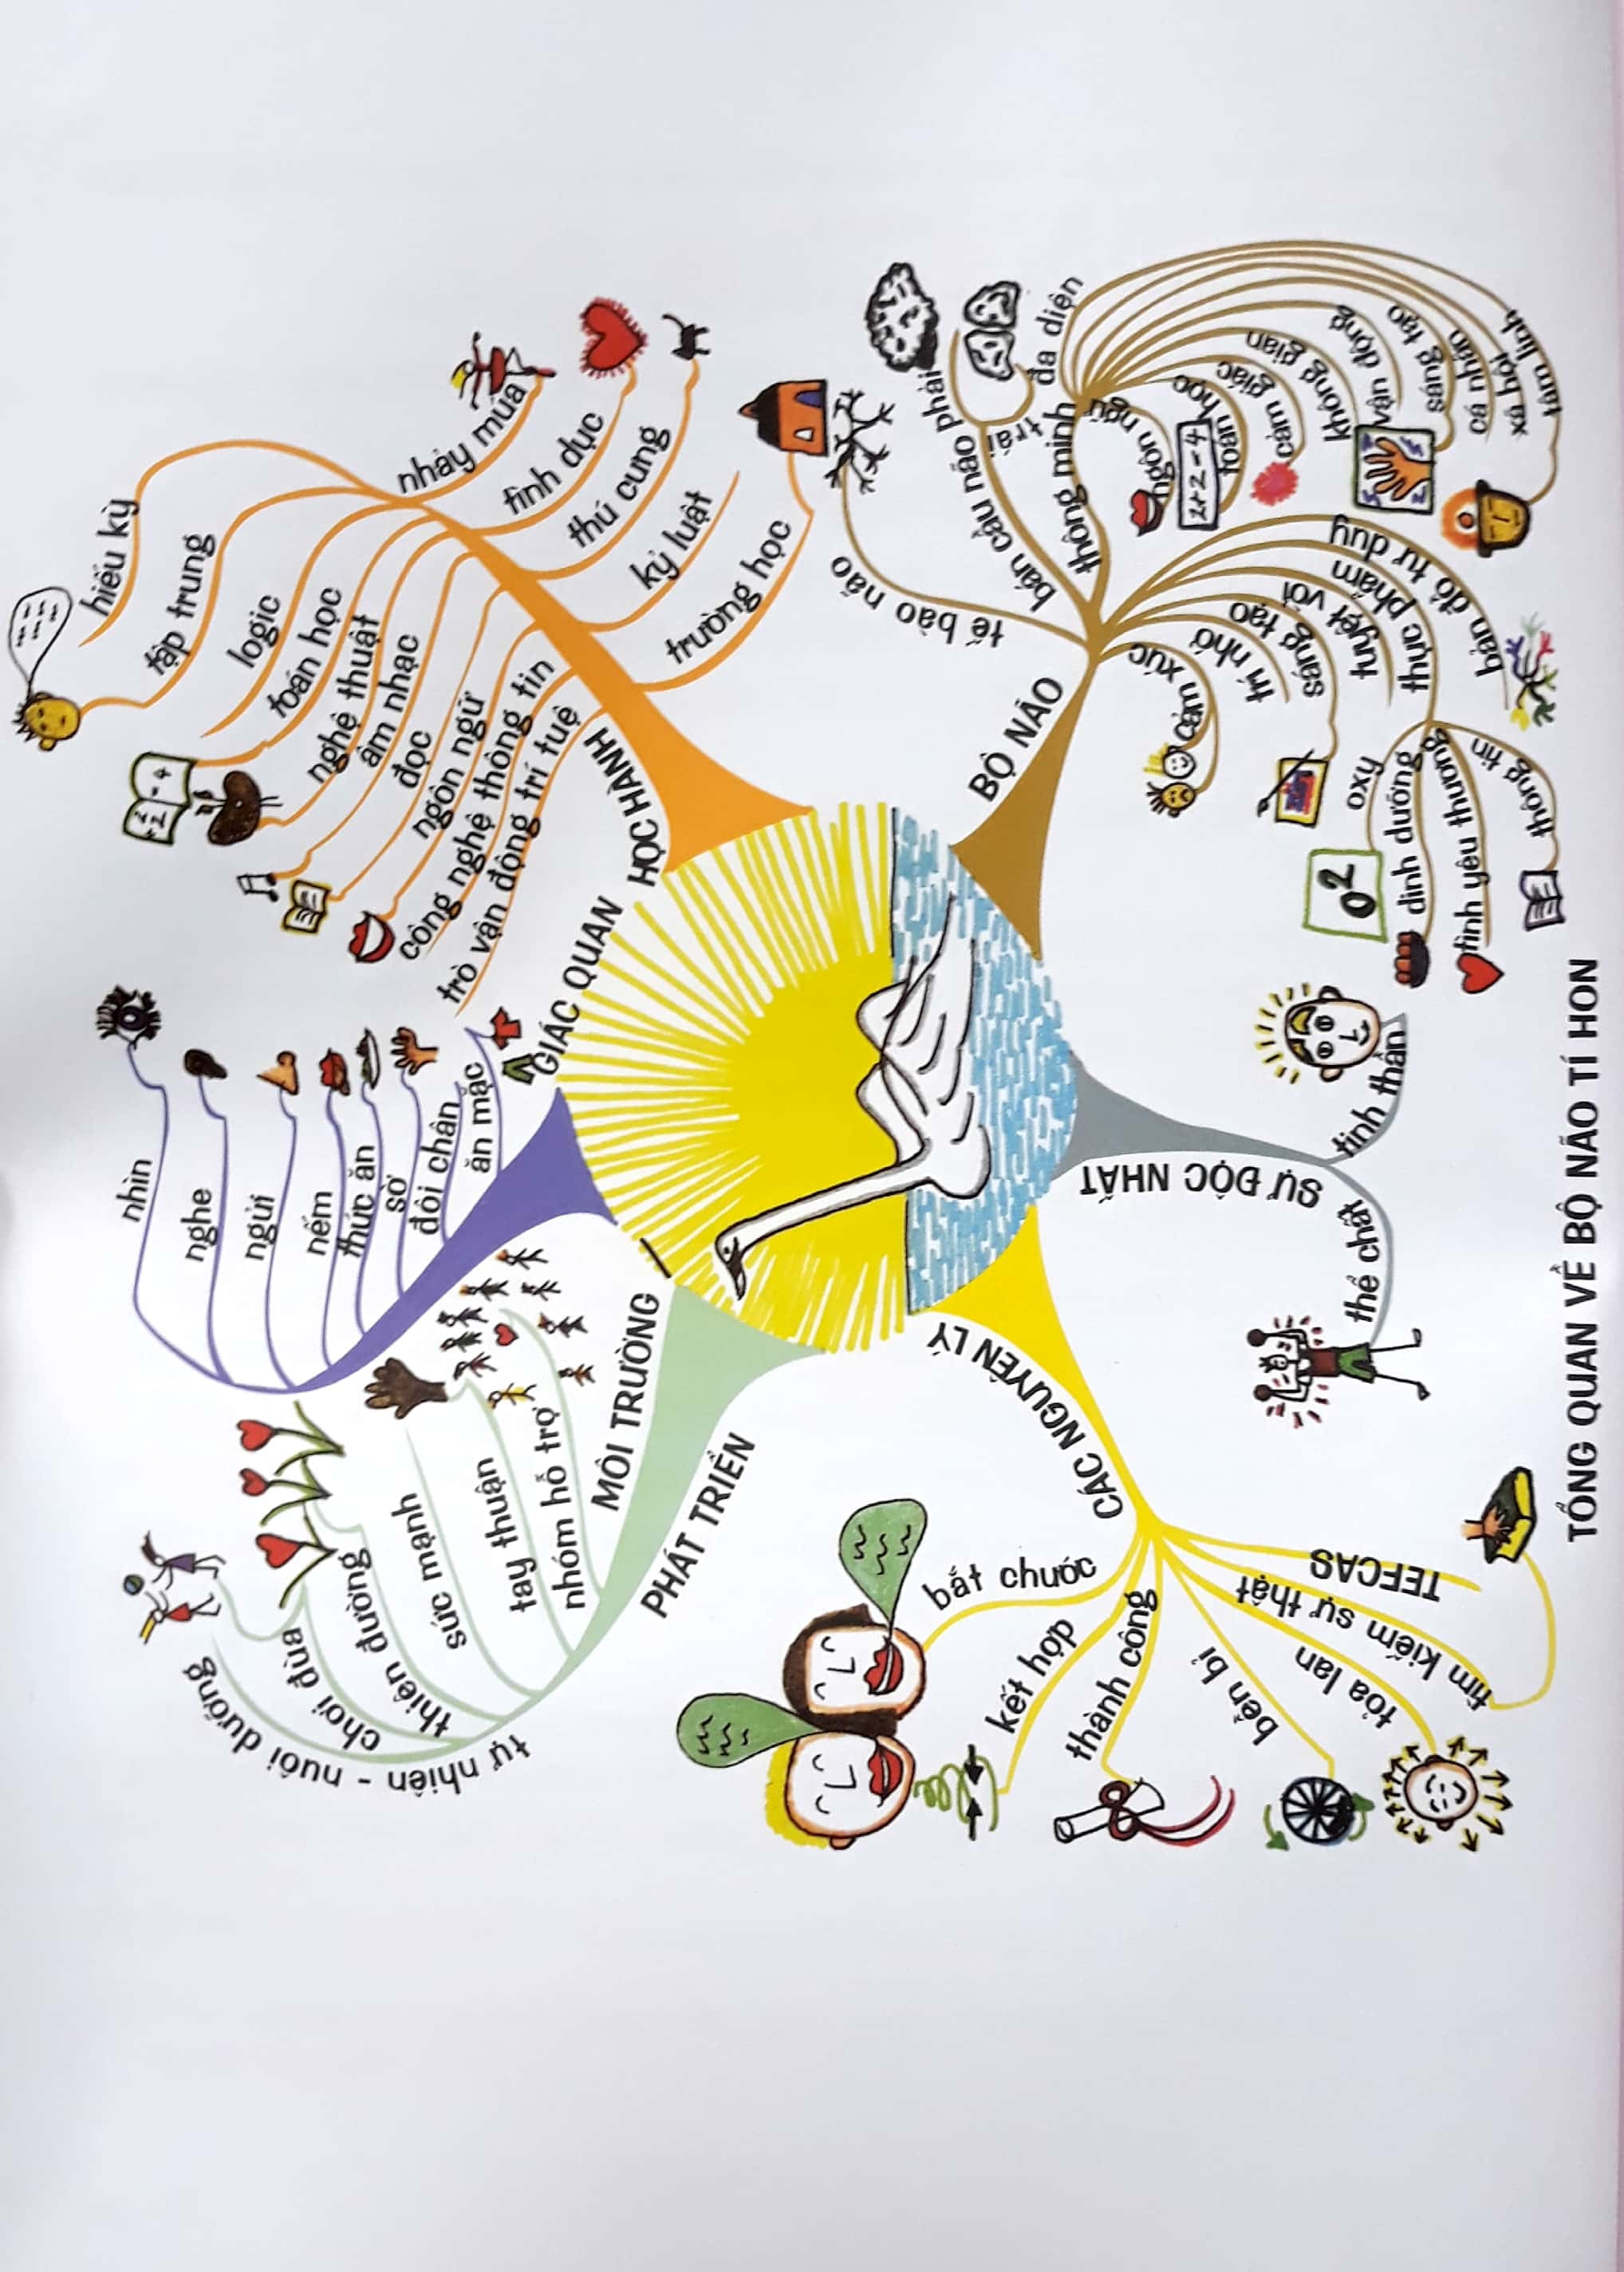 BỘ NÃO
tế bào não
bán cầu não phải
trái
thông minh
đa diện
ngôn ngữ
2+2=4
toán học
cảm giác
không gian
vận động
sáng tạo
cá nhân
xã hội
tâm linh
cảm xúc
trí nhớ
sáng tạo
tuyệt vời
thực phẩm
oxy
O2
dinh dưỡng
tình yêu thương
thông tin
bản đồ tư duy
SỰ ĐỘC NHẤT
tinh thần
thể chất
CÁC NGUYÊN LÝ
TEFCAS
tìm kiếm sự thật
tỏa lan
bền bỉ
thành công
kết hợp
bắt chước
MÔI TRƯỜNG
PHÁT TRIỂN
tự nhiên - nuôi dưỡng
chơi đùa
thiên đường
sức mạnh
tay thuận
nhóm hỗ trợ
GIÁC QUAN
nhìn
nghe
ngửi
nếm
thức ăn
sờ
đôi chân
ăn mặc
HỌC HÀNH
hiếu kỳ
tập trung
logic
toán học
nghệ thuật
âm nhạc
đọc
ngôn ngữ
công nghệ thông tin
trò vận động trí tuệ
nhảy múa
tình dục
thú cưng
kỷ luật
trường học
TỔNG QUAN VỀ BỘ NÃO TÍ HON